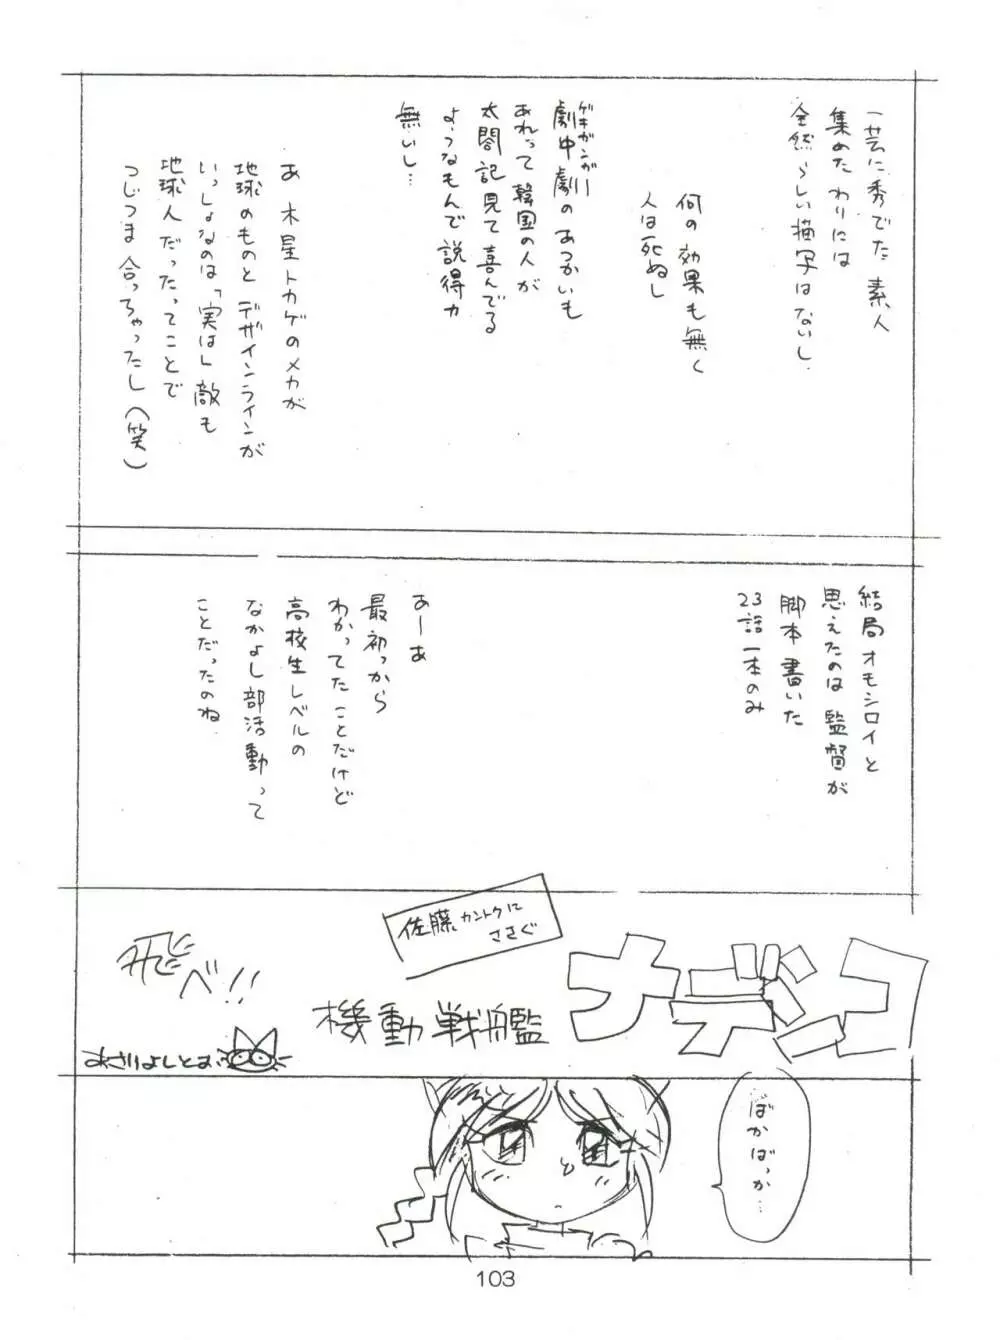 一芸に秀でた素人
集めたわりには
全然らしい描写はないし.
何の効果も無く
人は死ぬし
ゲキガンガー
劇中劇のあつかいも
あれって韓国の人が
太閤記見て喜んでる
ようなもんで説得力
無いし…
あ 木星トカゲのメカが
地球のものとデザインラインが
いっしょなのは「実は」敵も
地球人だったってことで
つじつま合っちゃったし(笑)
結局オモシロイと
思えたのは監督が
脚本書いた
23話一本のみ
あーあ
最初っから
わかってたことだけど
高校生レベルの
なかよし部活動って
ことだったのね
佐藤カントクに
ささぐ
飛べ!!
機動戦艦
ナデシコ
あさりよしとお
ばかばっか…
103